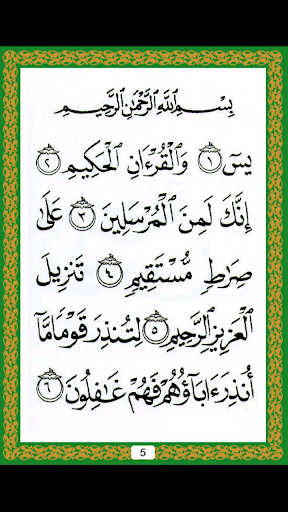 بِسْمِ اللَّهِ الرَّحْمَٰنِ الرَّحِيمِ
يسٓ ١ وَالْقُرْءَانِ الْحَكِيمِ ٢
إِنَّكَ لَمِنَ الْمُرْسَلِينَ ٣ عَلَىٰ
صِرَٰطٍ مُّسْتَقِيمٍ ٤ تَنزِيلَ
الْعَزِيزِ الرَّحِيمِ ٥ لِتُنذِرَ قَوْمًا مَّآ
أُنذِرَ ءَابَآؤُهُمْ فَهُمْ غَٰفِلُونَ ٦
5